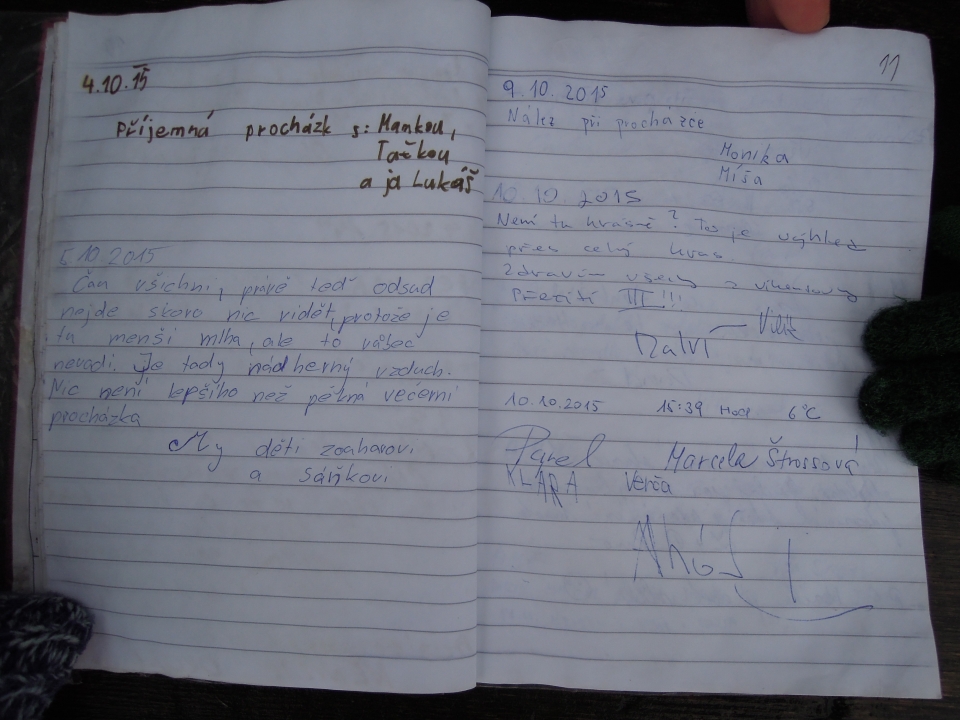 4.10.15
Příjemná procházk s: Mankou,
Tačkou
a ja Lukáš
5.10.2015
Čau všichni, právě teď odsud
nejde skoro nic vidět, protože je
tu menší mlha, ale to vůbec
nevadí. Je tady nádherný vzduch.
Nic není lepšího než pěkná večerní
procházka
My děti
a sáňkovi
11
9.10.2015
Nález při procházce
Monika
Míša
10.10.2015
Není tu krásně? To je výhled
přes celý kras
Zdravím všechny z víkendový
Přečtití III!!!
10.10.2015 15:39 Hod 6°C
Pavel Marcela Štrossová
KLÁRA Verča